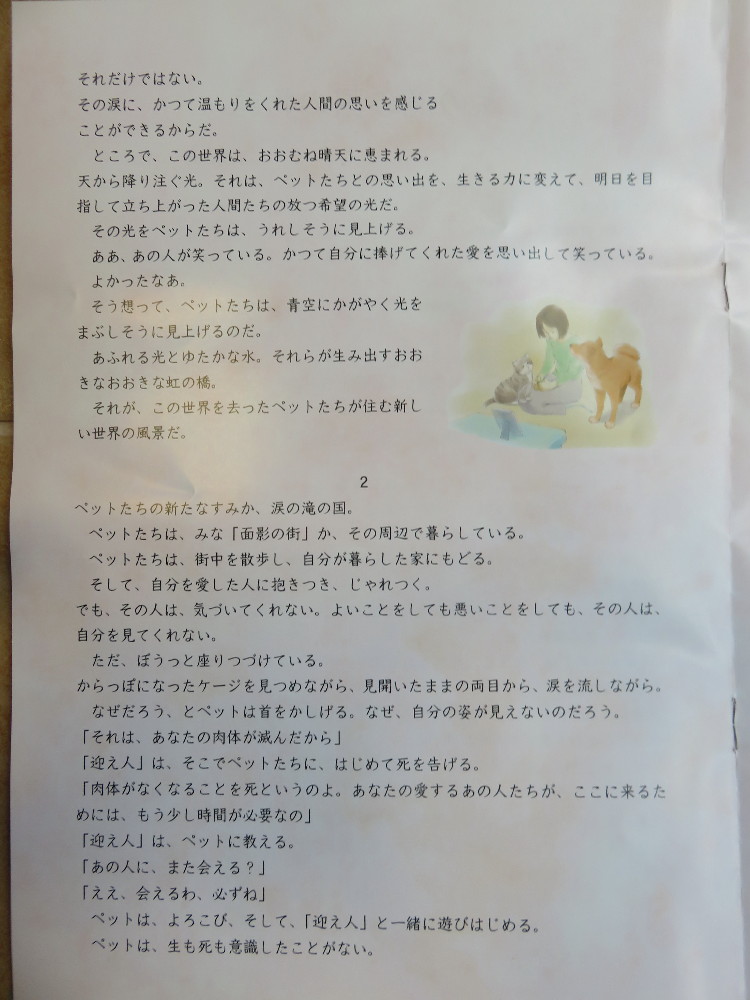 それだけではない。
その涙に、かつて温もりをくれた人間の思いを感じる
ことができるからだ。
ところで、この世界は、おおむね晴天に恵まれる。
天から降り注ぐ光。それは、ペットたちとの思い出を、生きる力に変えて、明日を目
指して立ち上がった人間たちの放つ希望の光だ。
その光をペットたちは、うれしそうに見上げる。
ああ、あの人が笑っている。かつて自分に捧げてくれた愛を思い出して笑っている。
よかったなあ。
そう想って、ペットたちは、青空にかがやく光を
まぶしそうに見上げるのだ。
あふれる光とゆたかな水。それらが生み出すおお
きなおおきな虹の橋。
それが、この世界を去ったペットたちが住む新し
い世界の風景だ。
2
ペットたちの新たなすみか、涙の滝の国。
ペットたちは、みな「面影の街」か、その周辺で暮らしている。
ペットたちは、街中を散歩し、自分が暮らした家にもどる。
そして、自分を愛した人に抱きつき、じゃれつく。
でも、その人は、気づいてくれない。よいことをしても悪いことをしても、その人は、
自分を見てくれない。
ただ、ぼうっと座りつづけている。
からっぽになったケージを見つめながら、見開いたままの両目から、涙を流しながら。
なぜだろう、とペットは首をかしげる。なぜ、自分の姿が見えないのだろう。
「それは、あなたの肉体が滅んだから」
「迎え人」は、そこでペットたちに、はじめて死を告げる。
「肉体がなくなることを死というのよ。あなたの愛するあの人たちが、ここに来るた
めには、もう少し時間が必要なの」
「迎え人」は、ペットに教える。
「あの人に、また会える？」
「ええ、会えるわ、必ずね」
ペットは、よろこび、そして、「迎え人」と一緒に遊びはじめる。
ペットは、生も死も意識したことがない。